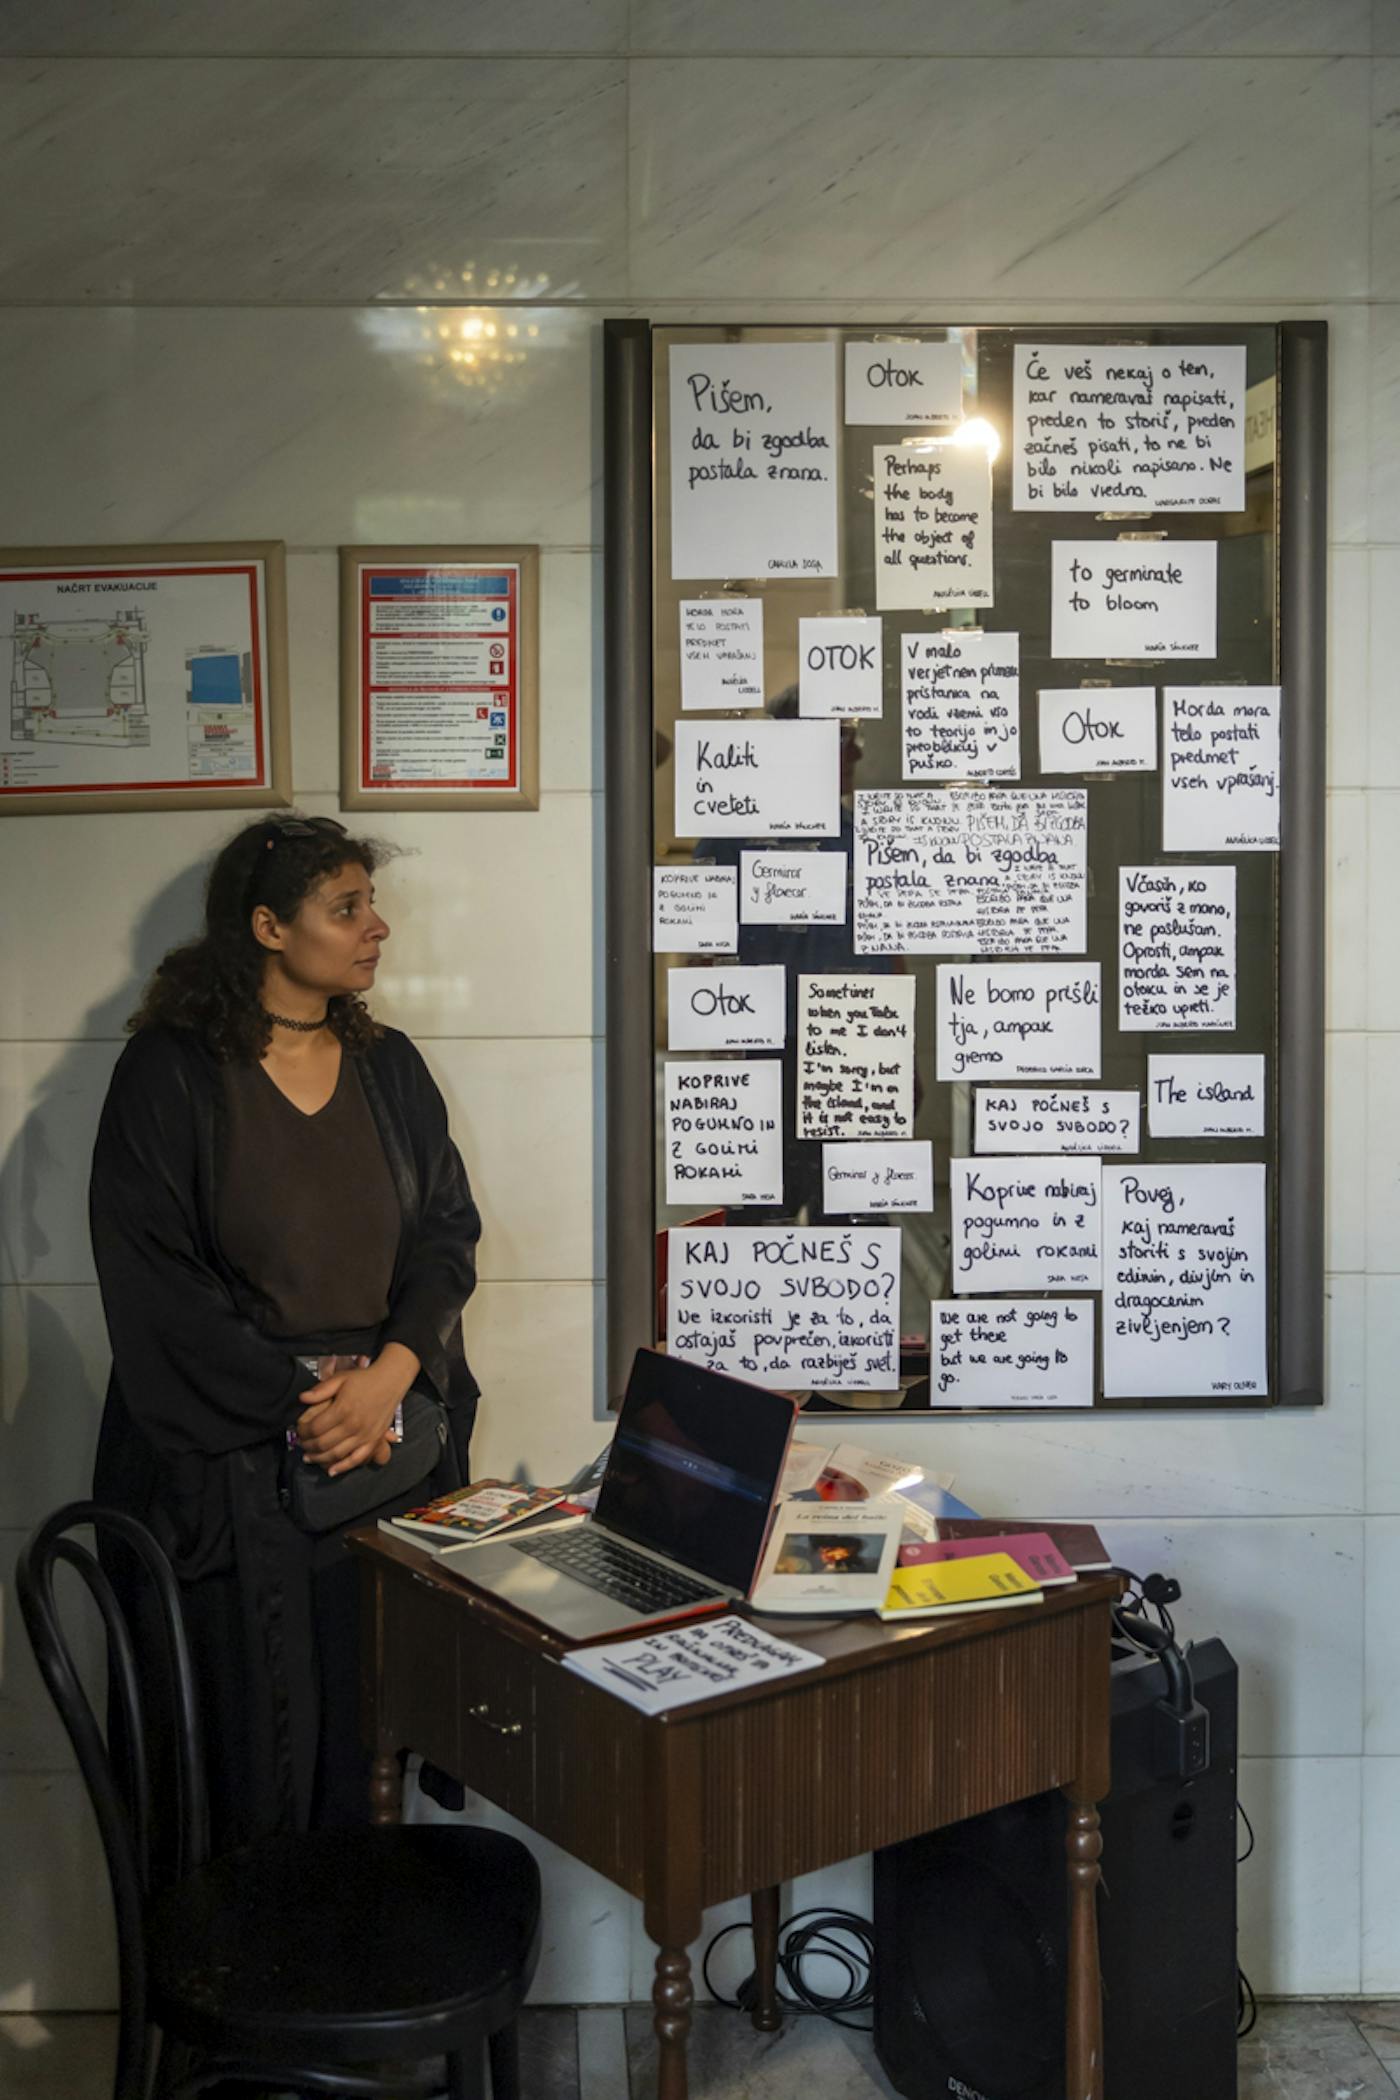 NAČRT EVAKUACIJE
Pišem,
da bi zgodba
postala znana.
Otok
JUAN ALBERTO M.
Če veš nekaj o tem,
kar nameravaš napisati,
preden to storiš, preden
začneš pisati, to ne bi
bilo nikoli napisano. Ne
bi bilo vredno.
Perhaps
the body
has to become
the object of
all questions.
ANGÉLICA LIDDELL
to germinate
to bloom
MARÍA SÁNCHEZ
MORDA MORA
TELO POSTATI
PREDMET
VSEH VPRAŠANJ
ANGÉLICA
LIDDELL
OTOK
JUAN ALBERTO M.
V malo
verjetnem primeru
pristanka na
vodi vzemi vso
to teorijo in jo
preoblikuj v
puško.
ALBERTO CORTÉS
Otok
JUAN ALBERTO M.
Morda mora
telo postati
predmet
vseh vprašanj.
ANGÉLICA LIDDELL
Kaliti
in
cveteti
MARÍA SÁNCHEZ
Pišem, da bi zgodba
postala znana.
KOPRIVE NABIRAJ
POGUMNO IN
Z GOLIMI
ROKAMI
SARA MESA
Germinar
y florecer.
MARÍA SÁNCHEZ
Včasih, ko
govoriš z mano,
ne poslušam.
Oprosti, ampak
morda sem na
otoku in se je
težko upreti.
JUAN ALBERTO MARTÍNEZ
Otok
JUAN ALBERTO M.
Sometimes
when you talk
to me I don't
listen.
I'm sorry, but
maybe I'm on
the island, and
it is not easy to
resist.
JUAN ALBERTO M.
Ne bomo prišli
tja, ampak
gremo
FEDERICO GARCÍA LORCA
The island
JUAN ALBERTO M.
KOPRIVE
NABIRAJ
POGUMNO IN
Z GOLIMI
ROKAMI
SARA MESA
KAJ POČNEŠ S
SVOJO SVOBODO?
ANGÉLICA LIDDELL
Germinar y florecer.
MARÍA SÁNCHEZ
Koprive nabiraj
pogumno in z
golimi rokami
SARA MESA
Povej,
kaj nameravaš
storiti s svojim
edinim, divjim in
dragocenim
življenjem?
MARY OLIVER
KAJ POČNEŠ S
SVOJO SVOBODO?
Ne izkoristi je za to, da
ostajaš povprečen, izkoristi
za to, da razbiješ svet.
ANGÉLICA LIDDELL
We are not going to
get there
but we are going to
go.
La reina del baile
PREDVAJAJ
IN
PLAY
DENON